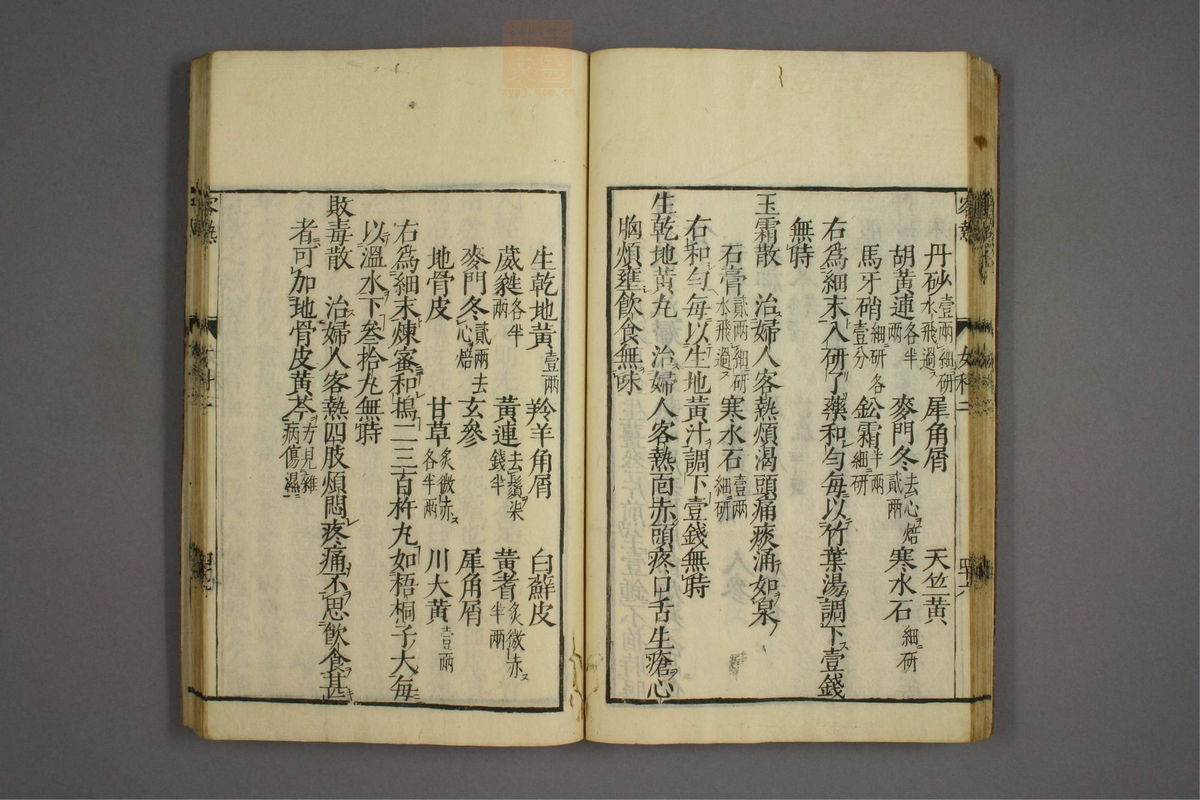 丹砂壹兩細研水飛過 犀角屑 天竺黃
胡黃連各半兩 麥門冬去心焙貳兩 寒水石細研
馬牙硝細研各壹分 鈆霜半兩細研
右爲細末入研了藥和勻每以竹葉湯調下壹錢
無時
玉霜散 治婦人客熱煩渴頭痛痰涌如泉
石膏貳兩細研水飛過 寒水石壹兩細研
右和勻每以生地黃汁調下壹錢無時
生乾地黃丸 治婦人客熱面赤頭疼口舌生瘡心
胸煩壅飮食無味
客熱 女科二
生乾地黃壹兩 羚羊角屑 白蘚皮
葳蕤各半兩 黃連去鬚柒錢半 黃耆炙微赤半兩
麥門冬貳兩去心焙 玄參 犀角屑
地骨皮 甘草炙微赤各半兩 川大黃壹兩
右爲細末煉蜜和搗二三百杵丸如梧桐子大每
以溫水下叄拾丸無時
敗毒散 治婦人客熱四肢煩悶疼痛不思飮食甚
者可加地骨皮黃芩方見雜病傷濕
客熱